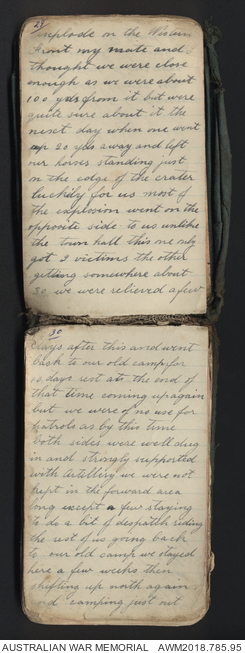 29
explode on the Western
Front my mate and I
thought we were close
enough as we were about
100 yds from it but were
quite sure about it the
next day when one went
up 20 yds away and left
our horses standing just
on the edge of the crater
luckily for us most of
the explosion went on the
opposite side to us unlike
the town hall this one only
got 2 victims the other
getting somewhere about
30 we were relieved a few
30
days after this and went
back to our old camp for
10 days rest at the end of
that time coming up again
but we were of no use for
patrols as by this time
both sides were well dug
in and strongly supported
with Artillery we were not
kept in the forward area
long except a few staying
to do a bit of despatch riding
the rest of us going back
to our old camp we stayed
here a few weeks then
shifting up north again
and camping just out
AUSTRALIAN WAR MEMORIAL AWM2018.785.95